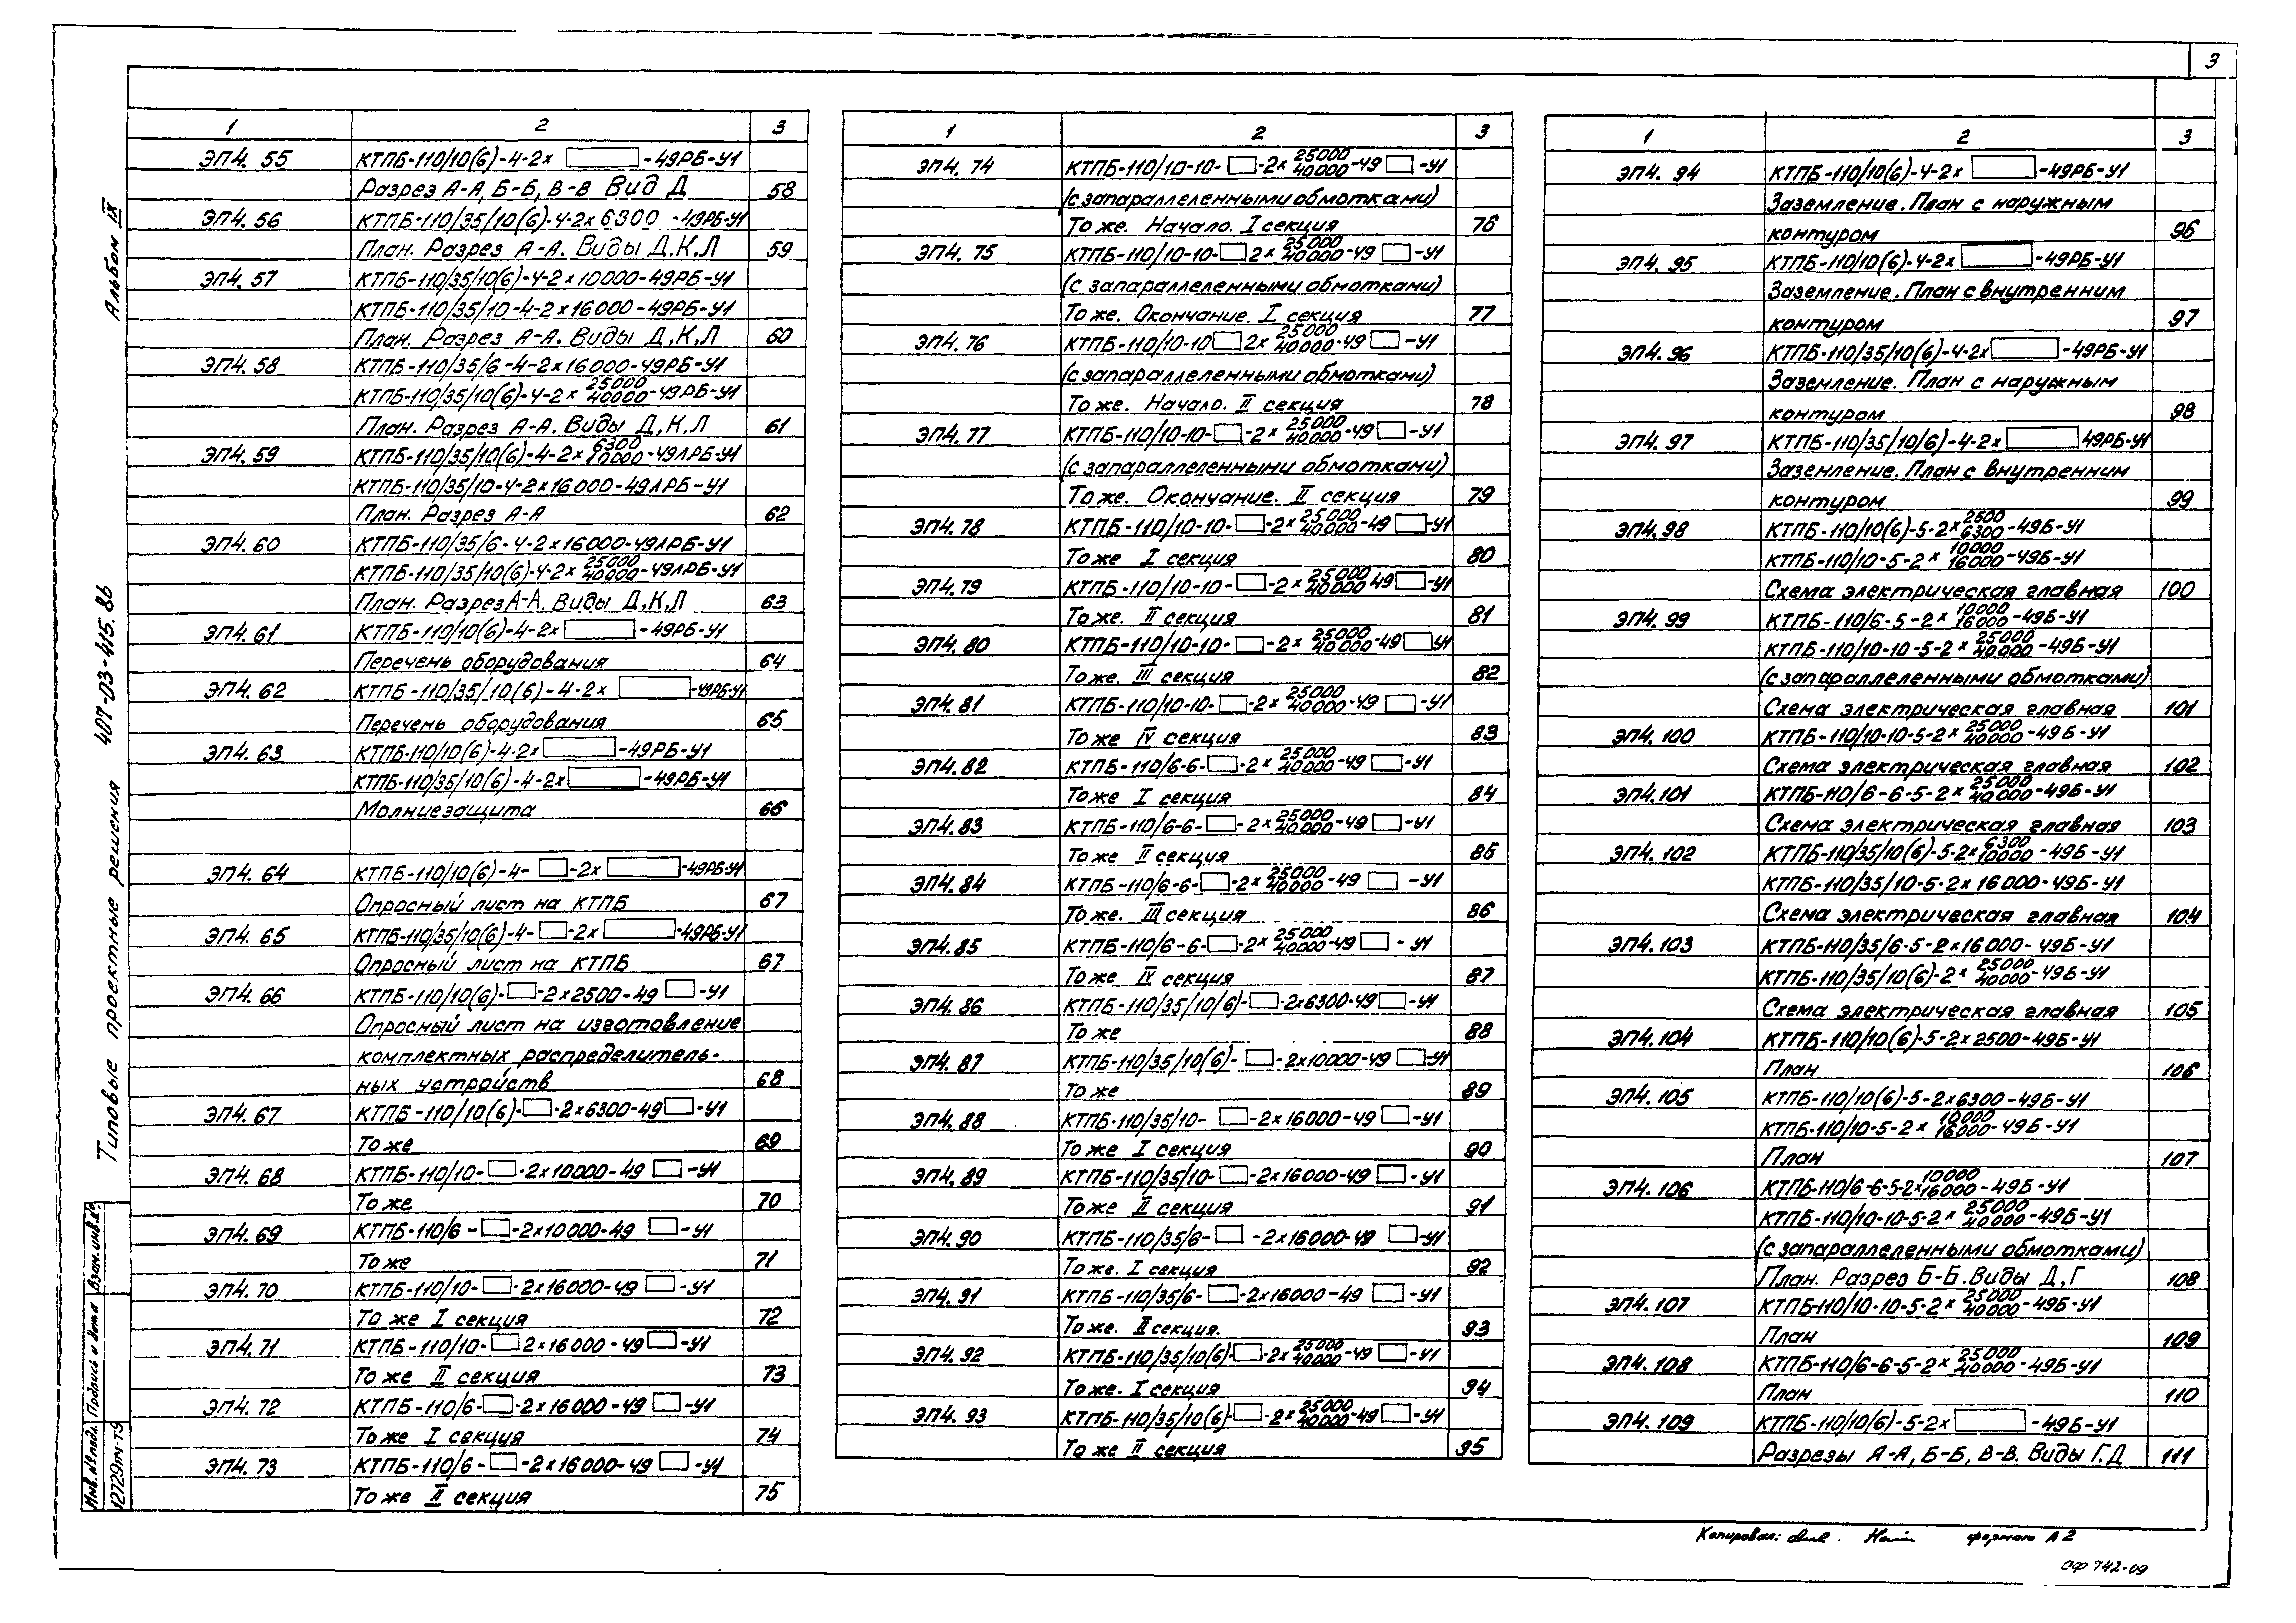 3
Альбом IX
Типовые проектные решения 407-03-415.86
Взам.инв.№
Подпись и дата
Инв.№ подл.
12729тм-т9
1 2 3
ЭП4. 55 КТПБ-110/10(6)-4-2х -49РБ-У1
Разрез А-А, Б-Б, В-В Вид Д 58
ЭП4. 56 КТПБ-110/35/10(6)-4-2х6300-49РБ-У1
План. Разрез А-А. Виды Д,К,Л 59
ЭП4. 57 КТПБ-110/35/10(6)-4-2х10000-49РБ-У1
КТПБ-110/35/10-4-2х16000-49РБ-У1
План. Разрез А-А. Виды Д,К,Л 60
ЭП4. 58 КТПБ-110/35/6-4-2х16000-49РБ-У1
КТПБ-110/35/10(6)-4-2х 25000/40000-49РБ-У1
План. Разрез А-А. Виды Д,К,Л 61
ЭП4. 59 КТПБ-110/35/10(6)-4-2х 6300/10000-49ЛРБ-У1
КТПБ-110/35/10-4-2х16000-49ЛРБ-У1
План. Разрез А-А 62
ЭП4. 60 КТПБ-110/35/6-4-2х16000-49ЛРБ-У1
КТПБ-110/35/10(6)-4-2х 25000/40000-49ЛРБ-У1
План. Разрез А-А. Виды Д,К,Л 63
ЭП4. 61 КТПБ-110/10(6)-4-2х -49РБ-У1
Перечень оборудования 64
ЭП4. 62 КТПБ-110/35/10(6)-4-2х -49РБ-У1
Перечень оборудования 65
ЭП4. 63 КТПБ-110/10(6)-4-2х -49РБ-У1
КТПБ-110/35/10(6)-4-2х -49РБ-У1
Молниезащита 66
ЭП4. 64 КТПБ-110/10(6)-4- -2х -49РБ-У1
Опросный лист на КТПБ 67
ЭП4. 65 КТПБ-110/35/10(6)-4- -2х -49РБ-У1
Опросный лист на КТПБ 67
ЭП4. 66 КТПБ-110/10(6)- -2х2500-49 -У1
Опросный лист на изготовление
комплектных распределитель-
ных устройств 68
ЭП4. 67 КТПБ-110/10(6)- -2х6300-49 -У1
То же 69
ЭП4. 68 КТПБ-110/10- -2х10000-49 -У1
То же 70
ЭП4. 69 КТПБ-110/6- -2х10000-49 -У1
То же 71
ЭП4. 70 КТПБ-110/10- -2х16000-49 -У1
То же I секция 72
ЭП4. 71 КТПБ-110/10- 2х16000-49 -У1
То же II секция 73
ЭП4. 72 КТПБ-110/6- -2х16000-49 -У1
То же I секция 74
ЭП4. 73 КТПБ-110/6- -2х16000-49 -У1
То же II секция 75
1 2 3
ЭП4. 74 КТПБ-110/10-10- -2х 25000/40000-49 -У1
(с запараллеленными обмотками)
То же. Начало. I секция 76
ЭП4. 75 КТПБ-110/10-10- 2х 25000/40000-49 -У1
(с запараллеленными обмотками)
То же. Окончание. I секция 77
ЭП4. 76 КТПБ-110/10-10 2х 25000/40000-49 -У1
(с запараллеленными обмотками)
То же. Начало. II секция 78
ЭП4. 77 КТПБ-110/10-10- -2х 25000/40000-49 -У1
(с запараллеленными обмотками)
То же. Окончание. II секция 79
ЭП4. 78 КТПБ-110/10-10- -2х 25000/40000-49 -У1
То же I секция 80
ЭП4. 79 КТПБ-110/10-10- -2х 25000/40000 49 -У1
То же. II секция 81
ЭП4. 80 КТПБ-110/10-10- -2х 25000/40000-49 У1
То же. III секция 82
ЭП4. 81 КТПБ-110/10-10- -2х 25000/40000-49 -У1
То же IV секция 83
ЭП4. 82 КТПБ-110/6-6- -2х 25000/40000-49 -У1
То же I секция 84
ЭП4. 83 КТПБ-110/6-6- -2х 25000/40000-49 -У1
То же II секция 85
ЭП4. 84 КТПБ-110/6-6- -2х 25000/40000-49 -У1
То же. III секция 86
ЭП4. 85 КТПБ-110/6-6- -2х 25000/40000-49 -У1
То же IV секция 87
ЭП4. 86 КТПБ-110/35/10/6)- -2х6300-49 -У1
То же 88
ЭП4. 87 КТПБ-110/35/10(6)- -2х10000-49 -У1
То же 89
ЭП4. 88 КТПБ-110/35/10- -2х16000-49 -У1
То же I секция 90
ЭП4. 89 КТПБ-110/35/10- -2х16000-49 -У1
То же II секция 91
ЭП4. 90 КТПБ-110/35/6- -2х16000-49 -У1
То же. I секция 92
ЭП4. 91 КТПБ-110/35/6- -2х16000-49 -У1
То же. II секция. 93
ЭП4. 92 КТПБ-110/35/10(6)- -2х 25000/40000-49 -У1
То же. I секция 94
ЭП4. 93 КТПБ-110/35/10(6)- -2х 25000/40000-49 -У1
То же II секция 95
1 2 3
ЭП4. 94 КТПБ-110/10(6)-4-2х -49РБ-У1
Заземление. План с наружным
контуром 96
ЭП4. 95 КТПБ-110/10(6)-4-2х -49РБ-У1
Заземление. План с внутренним
контуром 97
ЭП4. 96 КТПБ-110/35/10(6)-4-2х -49РБ-У1
Заземление. План с наружным
контуром 98
ЭП4. 97 КТПБ-110/35/10/6)-4-2х 49РБ-У1
Заземление. План с внутренним
контуром 99
ЭП4. 98 КТПБ-110/10(6)-5-2х 2500/6300-49Б-У1
КТПБ-110/10-5-2х 10000/16000-49Б-У1
Схема электрическая главная 100
ЭП4. 99 КТПБ-110/6-5-2х 10000/16000-49Б-У1
КТПБ-110/10-10-5-2х 25000/40000-49Б-У1
(с запараллеленными обмотками)
Схема электрическая главная 101
ЭП4. 100 КТПБ-110/10-10-5-2х 25000/40000-49Б-У1
Схема электрическая главная 102
ЭП4. 101 КТПБ-110/6-6-5-2х 25000/40000-49Б-У1
Схема электрическая главная 103
ЭП4. 102 КТПБ-110/35/10(6)-5-2х 6300/10000-49Б-У1
КТПБ-110/35/10-5-2х16000-49Б-У1
Схема электрическая главная 104
ЭП4. 103 КТПБ-110/35/6-5-2х16000-49Б-У1
КТПБ-110/35/10(6)-2х 25000/40000-49Б-У1
Схема электрическая главная 105
ЭП4. 104 КТПБ-110/10(6)-5-2х2500-49Б-У1
План 106
ЭП4. 105 КТПБ-110/10(6)-5-2х6300-49Б-У1
КТПБ-110/10-5-2х 10000/16000-49Б-У1
План 107
ЭП4. 106 КТПБ-110/6-6-5-2х 10000/16000-49Б-У1
КТПБ-110/10-10-5-2х 25000/40000-49Б-У1
(с запараллеленными обмотками)
План. Разрез Б-Б. Виды Д,Г 108
ЭП4. 107 КТПБ-110/10-10-5-2х 25000/40000-49Б-У1
План 109
ЭП4. 108 КТПБ-110/6-6-5-2х 25000/40000-49Б-У1
План 110
ЭП4. 109 КТПБ-110/10(6)-5-2х -49Б-У1
Разрезы А-А, Б-Б, В-В. Виды Г.Д 111
Копировал: формат А2
сф 742-09